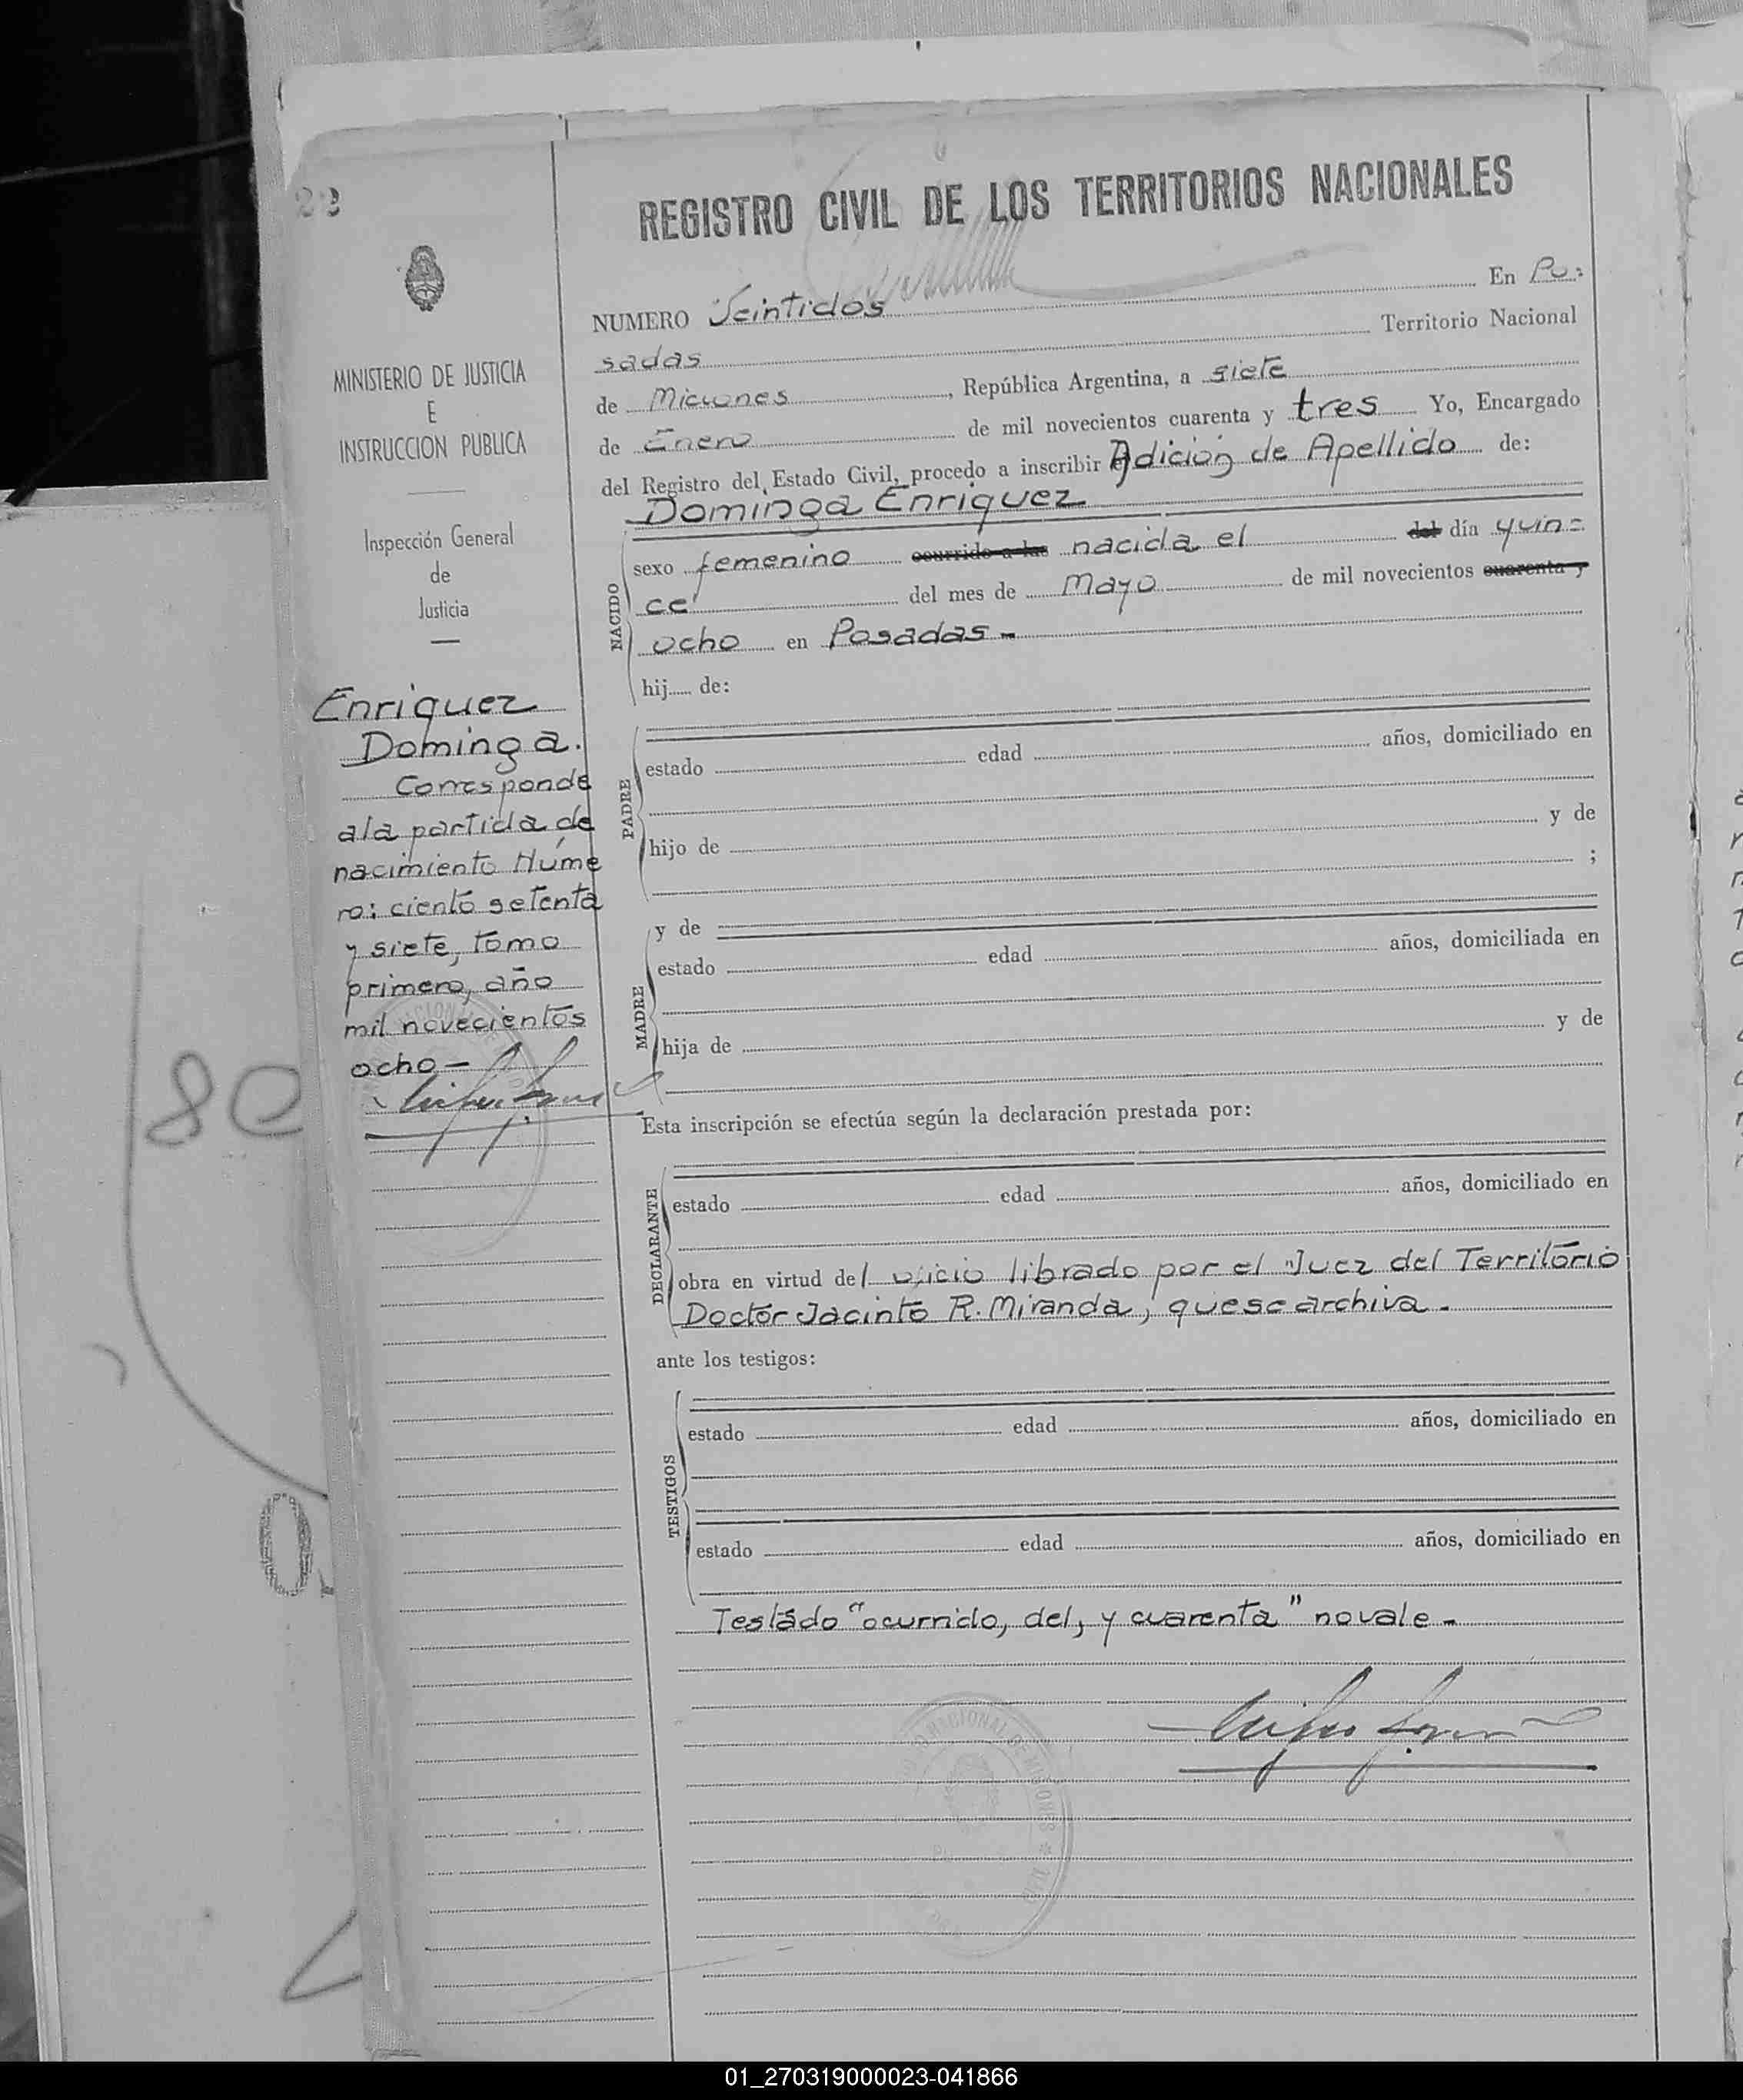 22
REGISTRO CIVIL DE LOS TERRITORIOS NACIONALES
NUMERO Veintidos En Po:
sadas Territorio Nacional
de Miciones, República Argentina, a siete
de Enero de mil novecientos cuarenta y tres Yo, Encargado
del Registro del Estado Civil, procedo a inscribir Adición de Apellido de:
Dominga Enriquez
NACIDO
sexo femenino ocurrido a las nacida el del día quin=
ce del mes de Mayo de mil novecientos cuarenta y
ocho en Posadas -
hij de:
PADRE
estado edad años, domiciliado en
hijo de y de
;
MADRE
y de
estado edad años, domiciliada en
hija de y de
Esta inscripción se efectúa según la declaración prestada por:
DECLARANTE
estado edad años, domiciliado en
obra en virtud del oficio librado por el Juez del Territorio
Doctor Jacinto R. Miranda, que se archiva -
ante los testigos:
TESTIGOS
estado edad años, domiciliado en
estado edad años, domiciliado en
Testado "ocurrido, del, y cuarenta" no vale -
MINISTERIO DE JUSTICIA
E
INSTRUCCION PUBLICA
Inspección General
de
Justicia
Enriquez
Dominga.
Corresponde
a la partida de
nacimiento Núme
ro: ciento setenta
y siete, tomo
primero, año
mil novecientos
ocho -
01_270319000023-041866